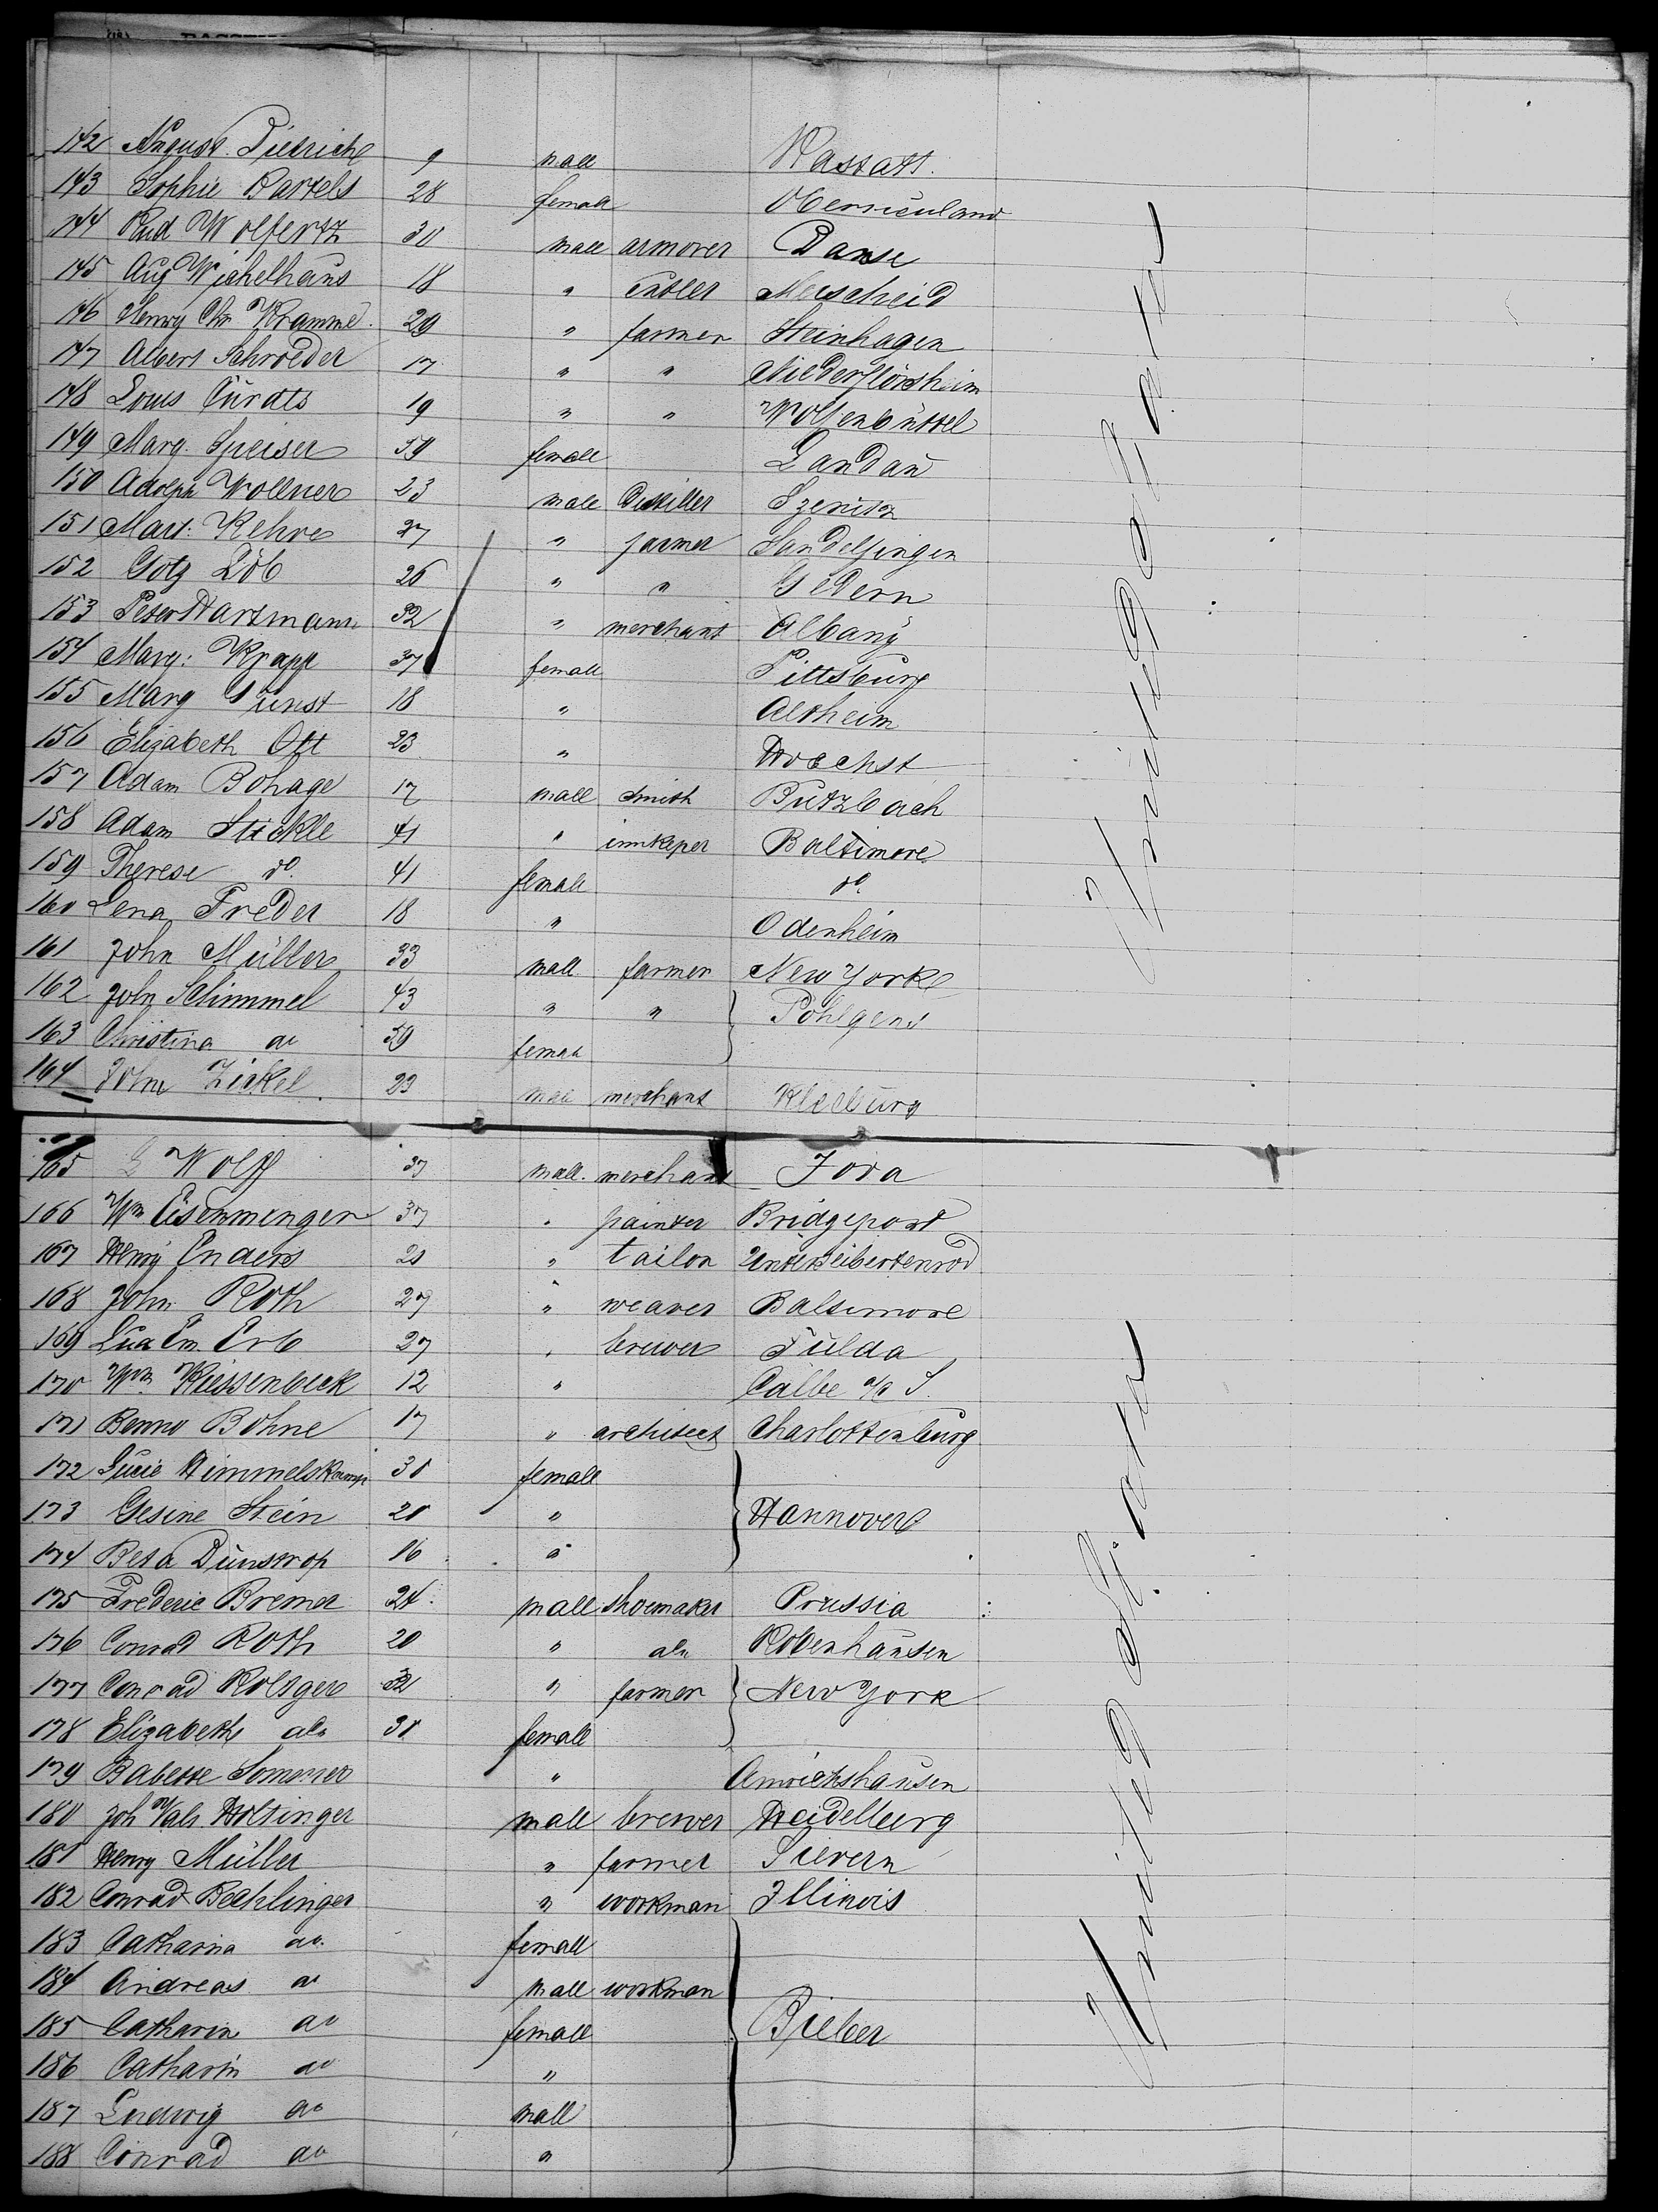 142 August Dietrich 9 male Rastatt.
143 Sophie Bartels 28 female Oberneuland
144 Rud Wolfertz 30 male armorer Danse
145 Aug Wichelhaus 18 " cutler Merscheid
146 Henry Chr Kramme. 29 " farmer Steinhagen
147 Albert Schroeder 17 " " Niederflörsheim
148 Louis Curdts 19 " " Wolfenbüttel
149 Marg. Speiser 59 female Landau
150 Adolph Wollner 23 male Distiller Szenitz
151 Mart: Kehre 27 " farmer Sandelfingen
152 Gotz Löb 26 " " Gedern
153 Peter Hartmann 32 " merchant Albany
154 Marg: Krapp 37 female Pittsburg
155 Marg Sunst 18 " Altheim
156 Elizabeth Ott 23 " Hoechst
157 Adam Bohage 17 male Smith Butzbach
158 Adam Stickle 41 " innkeper Baltimore
159 Therese do. 41 female do.
160 Lena Freder 18 " Odenheim
161 John Müller 33 male farmer New York
162 John Schimmel 43 " " Pohlgens
163 Christina do 59 female
164 John Zickel 23 male merchant Kleeburg
165 Wolff 37 male. merchant Iova
166 Wm Eisenmenger 37 " painter Bridgeport
167 Henry Enders 21 " tailor Unterseibertenrod
168 John Roth 27 " weaver Baltimore
169 Em. Erb 27 " brewer Fulda
170 Wm Kiessenbeck 12 " Calbe a/S.
171 Benno Bohne 17 " architect Charlottenburg
172 Lucie Himmelskamp 30 female
173 Gesine Stein 20 " Hannover
174 Beta Dunstrop 16 "
175 Frederic Bremer 24 male shoemaker Prussia
176 Conrad Roth 20 " do. Robenhausen
177 Conrad Roltger 32 " farmer New York
178 Elizabeth do. 30 female
179 Babette Sommer " Amrichshausen
180 Joh Val. Holtinger male brewer Heidelberg
181 Henry Müller " farmer Sievern
182 Conrad Bechlinger " workman Illinois
183 Catharina do. female
184 Andreas do male workman
185 Catharin do female Bieber
186 Catharin do "
187 Ludwig do male
188 Conrad do "
United States
United States